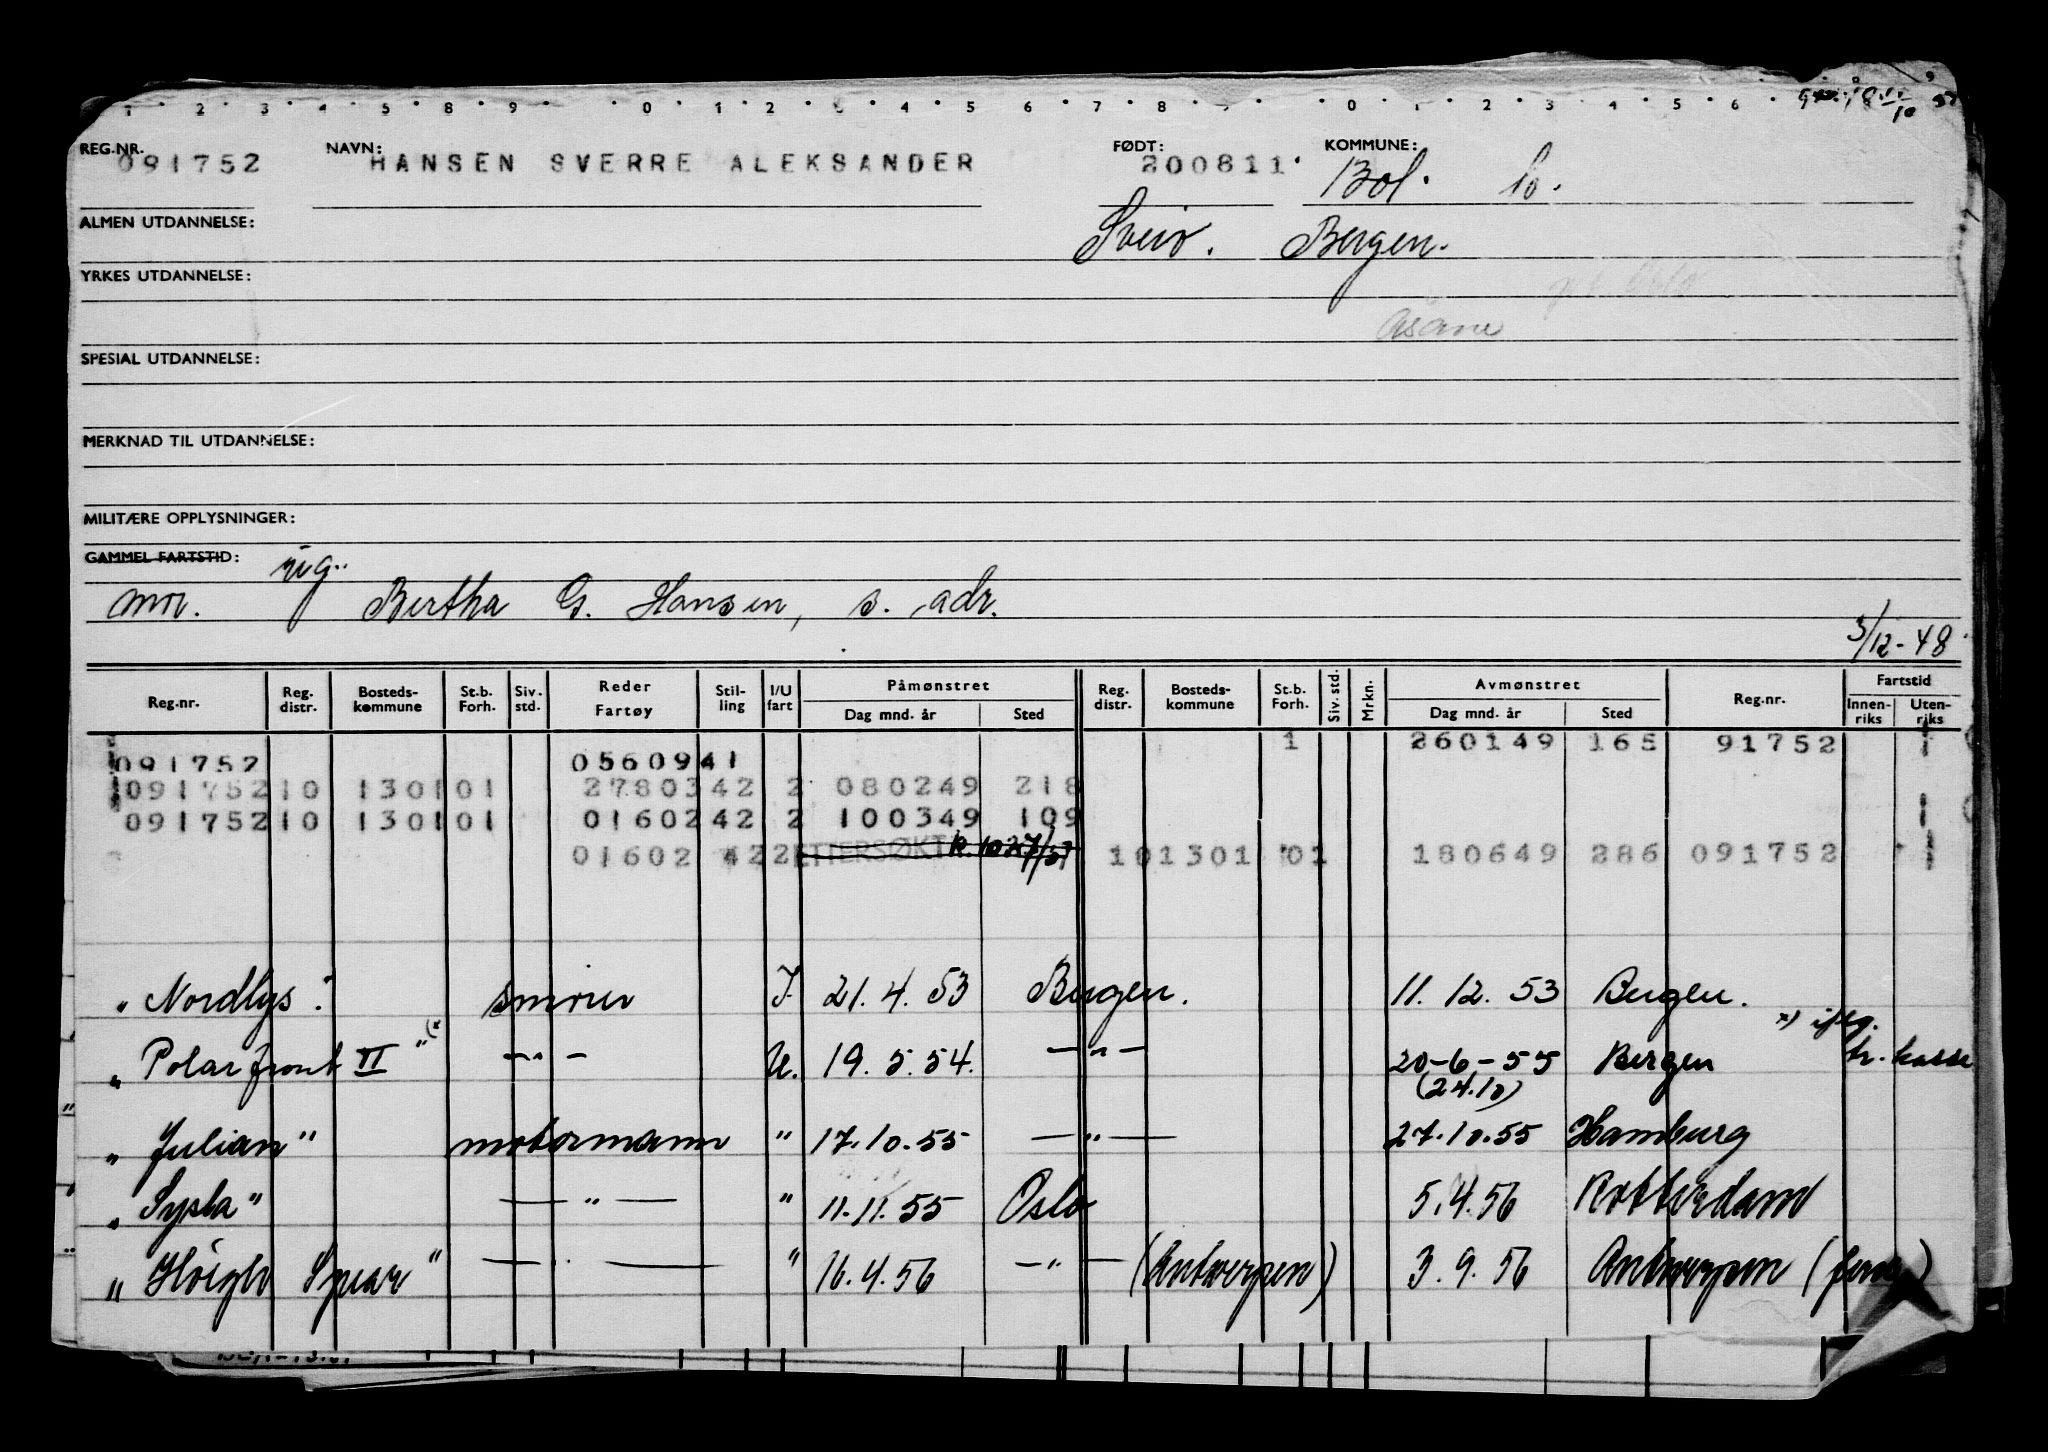 REG.NR. 091752 NAVN: HANSEN SVERRE ALEKSANDER FØDT: 200811. KOMMUNE: Bol. lo.
ALMEN UTDANNELSE: Sveio. Bergen.
YRKES UTDANNELSE:
Åsane
SPESIAL UTDANNELSE:
MERKNAD TIL UTDANNELSE:
MILITÆRE OPPLYSNINGER:
GAMMEL FARTSTID: ug..
mor. Bertha G. Hansen, s. adr.
3/12-48
Reg.nr. Reg. distr. Bosteds-kommune St.b. Forh. Siv. std. Reder Fartøy Stil-ling I/U fart Påmønstret Dag mnd. år Sted Reg. distr. Bosteds-kommune St.b. Forh. Siv. std. Mrkn. Avmønstret Dag mnd. år Sted Reg.nr. Fartstid Innen-riks Uten-riks
1 260149 165 91752 1
091752 0560941
091752 10 1301 01 27803 42 2 080249 218
091752 10 1301 01 01602 42 2 100349 109
01602 42 2 ETTERSØKT 10 1301 01 180649 286 091752 1
„ Nordlys " smører I. 21.4.53 Bergen. 11.12.53 Bergen.
„ Polarfront II " (x — " — U. 19.5.54. — " — 20-6-55 Bergen
(24.10)
„ Julian " motormann " 17.10.55 — " — 27.10.55 Hamburg
„ Sysla " — " — " 11.11.55 Oslo 5.4.56 Rotterdam
„ Høegh Spear " — " — " 16.4.56 — " — (Antwerpen) 3.9.56 Antwerpen